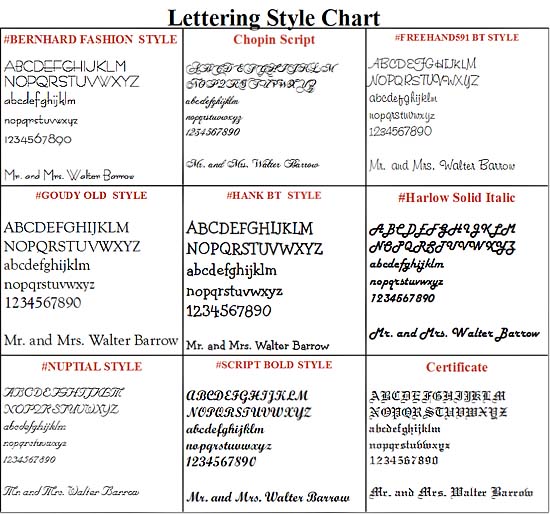 Lettering Style Chart
#BERNHARD FASHION STYLE
ABCDEFGHIJKLM
NOPQRSTUVWXYZ
abcdefghijklm
nopqrstuvwxyz
1234567890
Mr. and Mrs. Walter Barrow
Chopin Script
ABCDEFGHIJKLM
NOPQRSTUVWXYZ
abcdefghijklm
nopqrstuvwxyz
1234567890
Mr. and Mrs. Walter Barrow
#FREEHAND591 BT STYLE
ABCDEFGHIJKLM
NOPQRSTUVWXYZ
abcdefghijklm
nopqrstuvwxyz
1234567890
Mr. and Mrs. Walter Barrow
#GOUDY OLD STYLE
ABCDEFGHIJKLM
NOPQRSTUVWXYZ
abcdefghijklm
nopqrstuvwxyz
1234567890
Mr. and Mrs. Walter Barrow
#HANK BT STYLE
ABCDEFGHIJKLM
NOPQRSTUVWXYZ
abcdefghijklm
nopqrstuvwxyz
1234567890
Mr. and Mrs. Walter Barrow
#Harlow Solid Italic
ABCDEFGHIJKLM
NOPQRSTUVWXYZ
abcdefghijklm
nopqrstuvwxyz
1234567890
Mr. and Mrs. Walter Barrow
#NUPTIAL STYLE
ABCDEFGHIJKLM
NOPQRSTUVWXYZ
abcdefghijklm
nopqrstuvwxyz
1234567890
Mr. and Mrs. Walter Barrow
#SCRIPT BOLD STYLE
ABCDEFGHIJKLM
NOPQRSTUVWXYZ
abcdefghijklm
nopqrstuvwxyz
1234567890
Mr. and Mrs. Walter Barrow
Certificate
ABCDEFGHIJKLM
NOPQRSTUVWXYZ
abcdefghijklm
nopqrstuvwxyz
1234567890
Mr. and Mrs. Walter Barrow